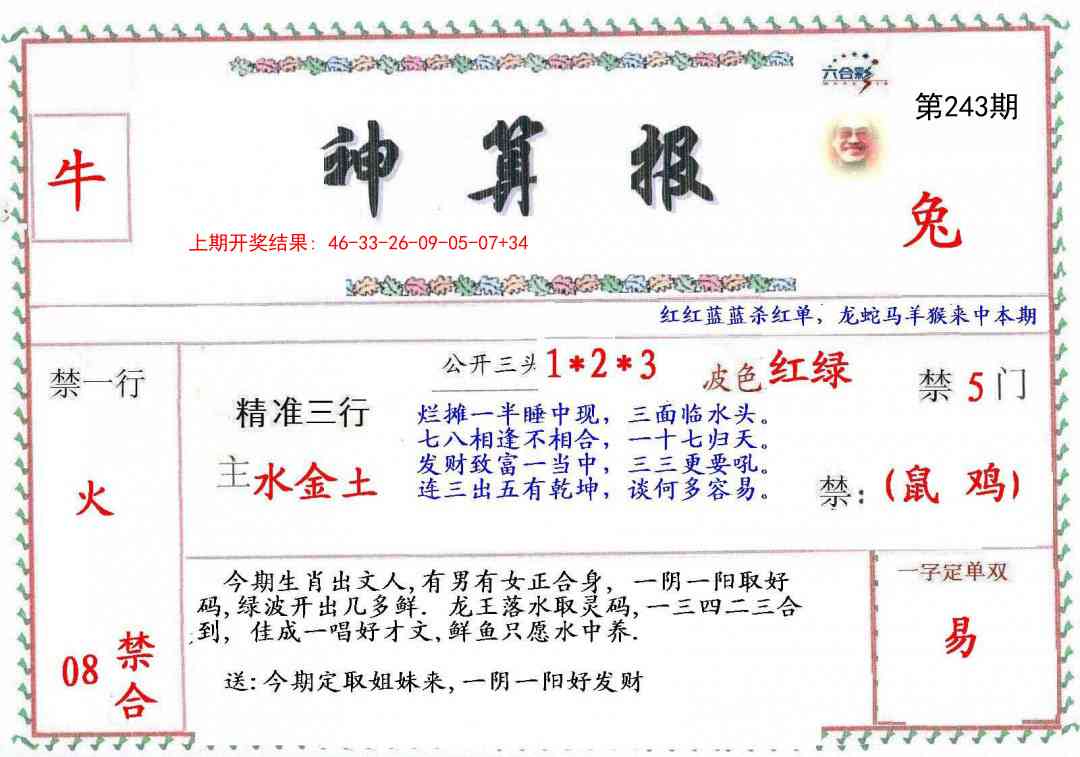 六合彩
第243期
牛
神算报
兔
上期开奖结果：46-33-26-09-05-07+34
红红蓝蓝杀红单，龙蛇马羊猴来中本期
禁一行
火
08 禁合
公开三头 1*2*3 波色 红绿
禁 5 门
精准三行
主 水金土
烂摊一半睡中现，三面临水头。
七八相逢不相合，一十七归天。
发财致富一当中，三三更要吼。
连三出五有乾坤，谈何多容易。
禁：(鼠 鸡)
今期生肖出文人,有男有女正合身, 一阴一阳取好
码,绿波开出几多鲜. 龙王落水取灵码,一三四二三合
到, 佳成一唱好才文,鲜鱼只愿水中养.
送:今期定取姐妹来,一阴一阳好发财
一字定单双
易